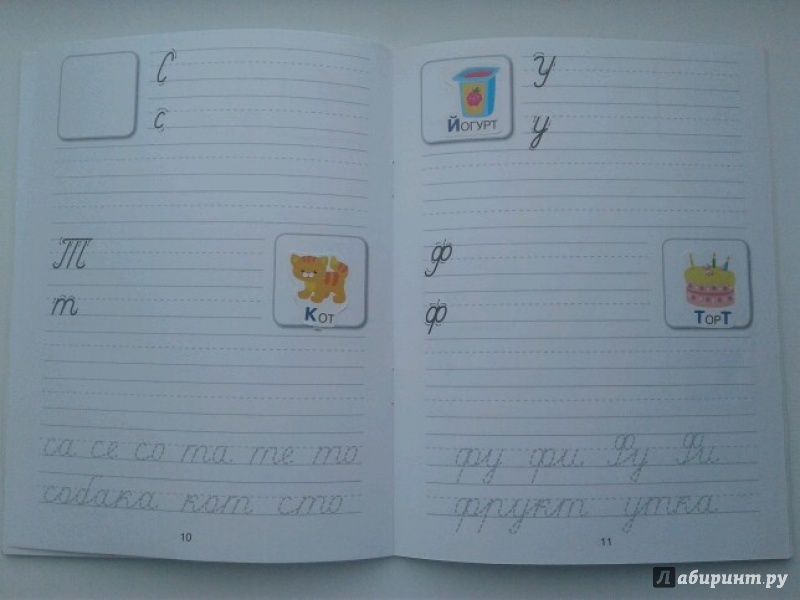 С
с
Т
т
Кот
са се со та те то
собака кот сто
10
Йогурт
У
у
Ф
ф
ТорТ
фу фи Фу Фи
фрукт утка
11
Лабиринт.ру